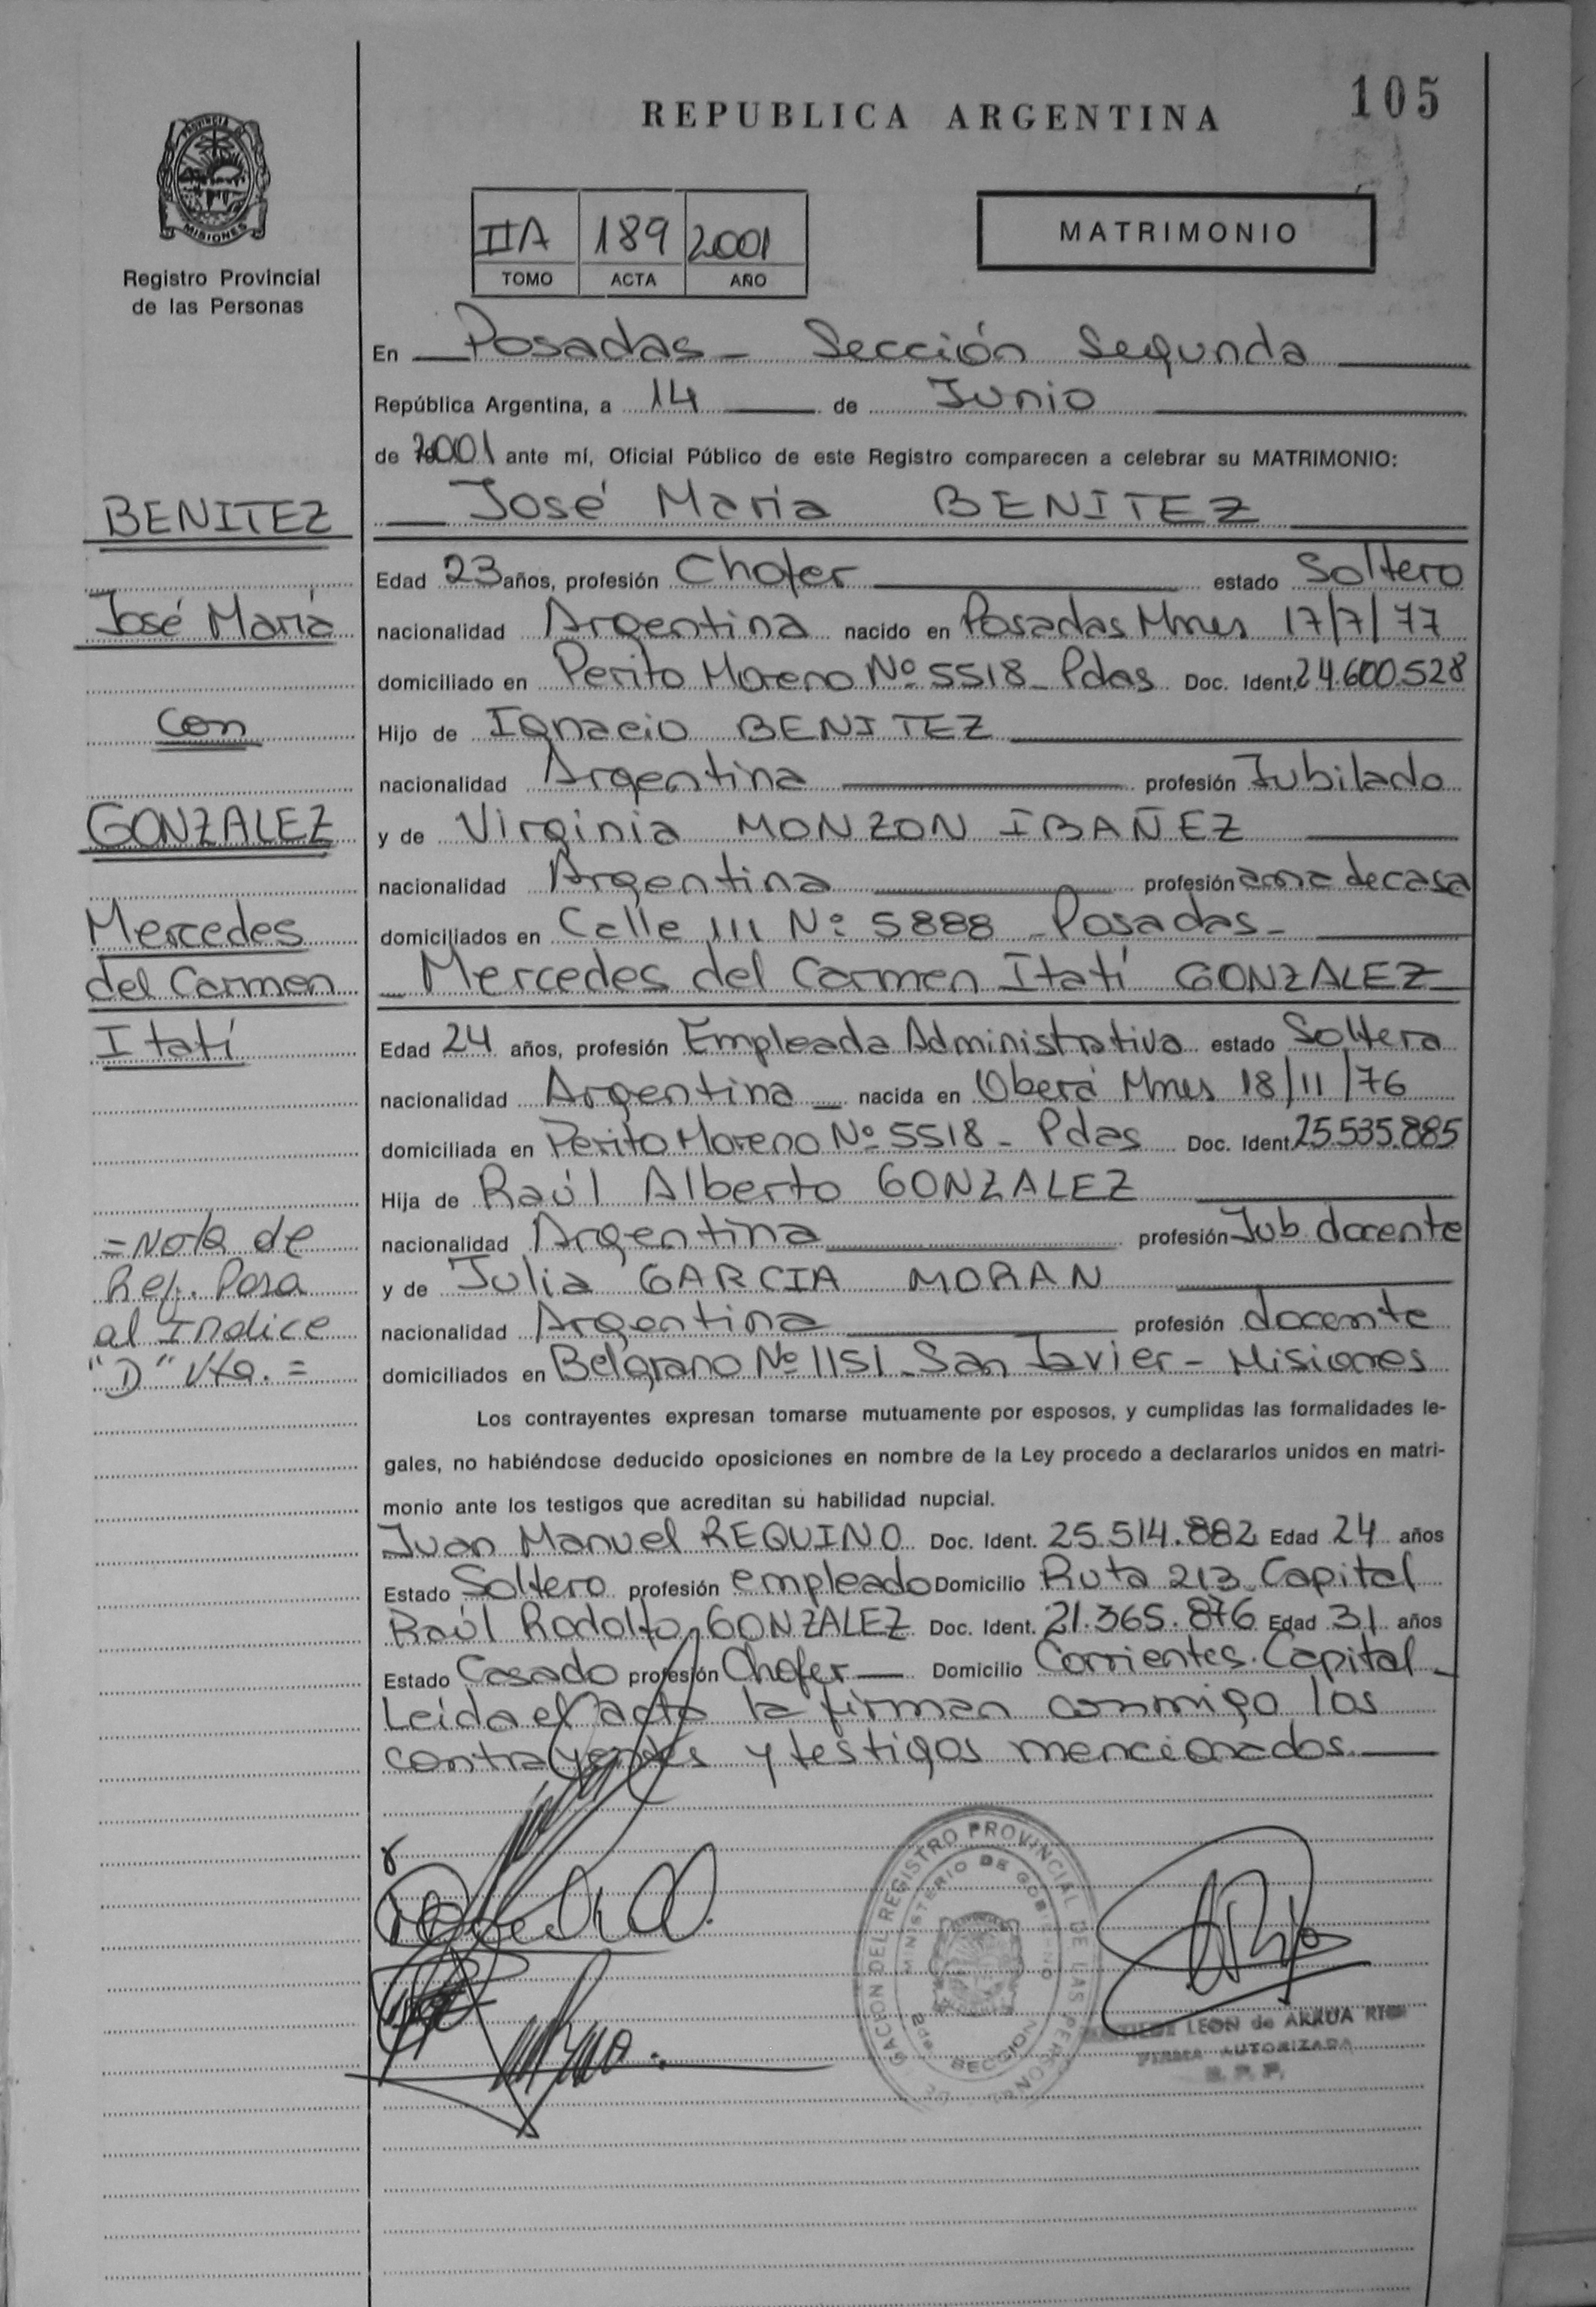 105
REPUBLICA ARGENTINA
PROVINCIA DE
MISIONES
Registro Provincial
de las Personas
IIA 189 2001
TOMO ACTA AÑO
MATRIMONIO
En Posadas - Sección Segunda
República Argentina, a 14 de Junio
de 2001 ante mí, Oficial Público de este Registro comparecen a celebrar su MATRIMONIO:
BENITEZ
José María
con
GONZALEZ
Mercedes
del Carmen
Itatí
=Nota de
Ref. Pasa
al Indice
"D" Vta. =
José María BENITEZ
Edad 23 años, profesión Chofer estado Soltero
nacionalidad Argentina nacido en Posadas Mnes 17/7/77
domiciliado en Perito Moreno Nº 5518 - Pdas Doc. Ident. 24.600.528
Hijo de Ignacio BENITEZ
nacionalidad Argentina profesión Jubilado
y de Virginia MONZON IBAÑEZ
nacionalidad Argentina profesión ama de casa
domiciliados en Calle 111 Nº 5888 - Posadas -
Mercedes del Carmen Itatí GONZALEZ
Edad 24 años, profesión Empleada Administrativa estado Soltera
nacionalidad Argentina nacida en Oberá Mnes 18/11/76
domiciliada en Perito Moreno Nº 5518 - Pdas Doc. Ident. 25.535.885
Hija de Raúl Alberto GONZALEZ
nacionalidad Argentina profesión Jub. docente
y de Julia GARCIA MORAN
nacionalidad Argentina profesión docente
domiciliados en Belgrano Nº 1151 - San Javier - Misiones
Los contrayentes expresan tomarse mutuamente por esposos, y cumplidas las formalidades le-
gales, no habiéndose deducido oposiciones en nombre de la Ley procedo a declararlos unidos en matri-
monio ante los testigos que acreditan su habilidad nupcial.
Juan Manuel REQUINO Doc. Ident. 25.514.882 Edad 24 años
Estado Soltero profesión empleado Domicilio Ruta 213 - Capital
Raúl Rodolfo GONZALEZ Doc. Ident. 21.365.876 Edad 31 años
Estado Casado profesión Chofer Domicilio Corrientes. Capital -
Leída el acta la firman conmigo los
contrayentes y testigos mencionados.
DEL REGISTRO PROVINCIAL DE LAS PERSON
MINISTERIO DE GOBIERNO
SECCION
LEON de ARRUA
FIRMA AUTORIZADA
R. P. P.